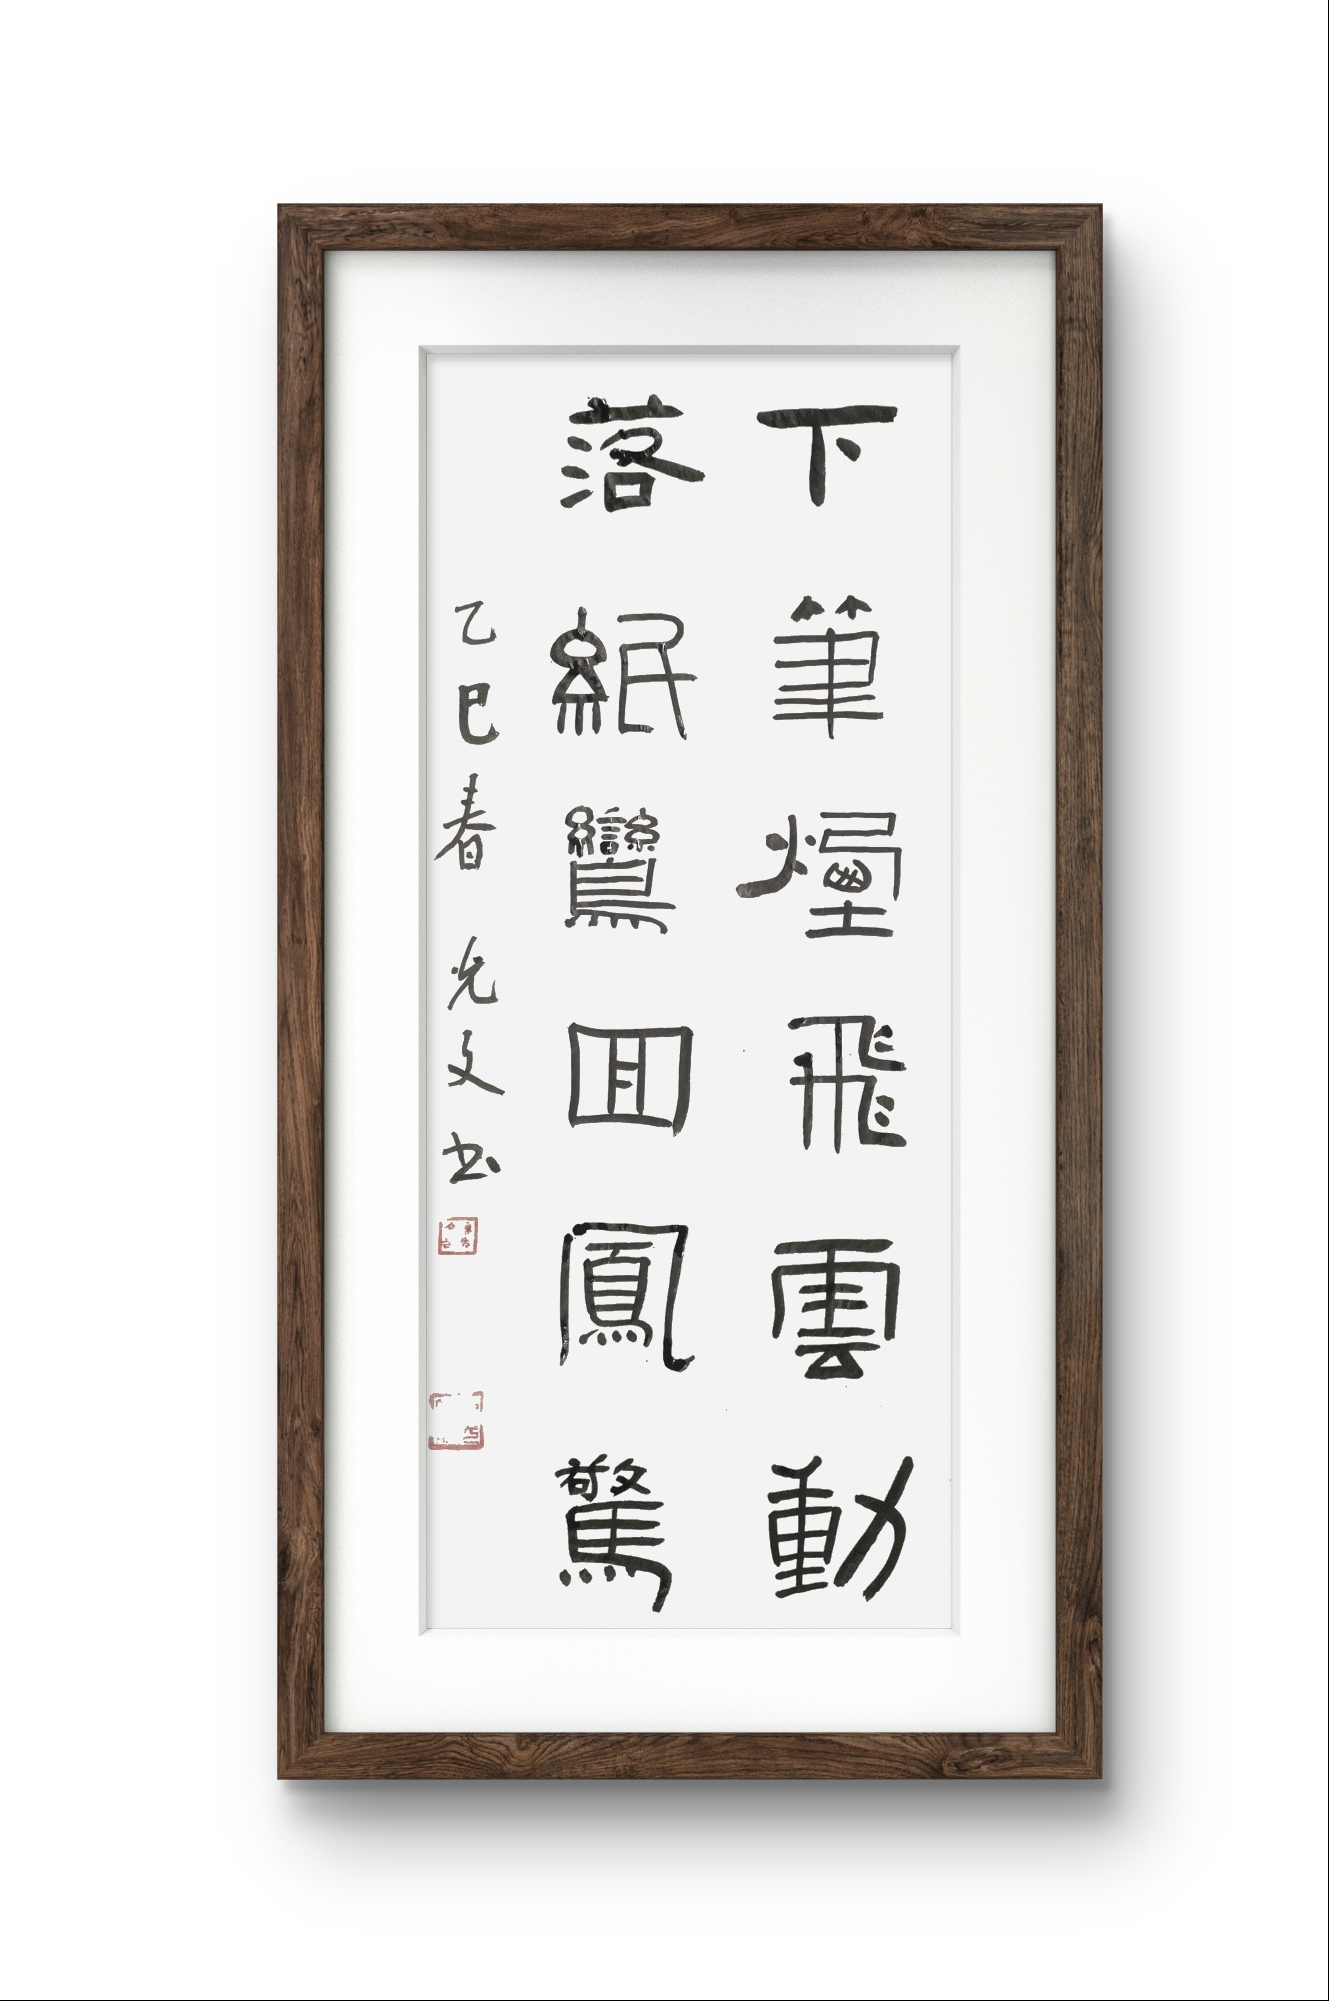 下筆煙飛雲動
落紙鸞囬鳳驚
乙巳春 光文书